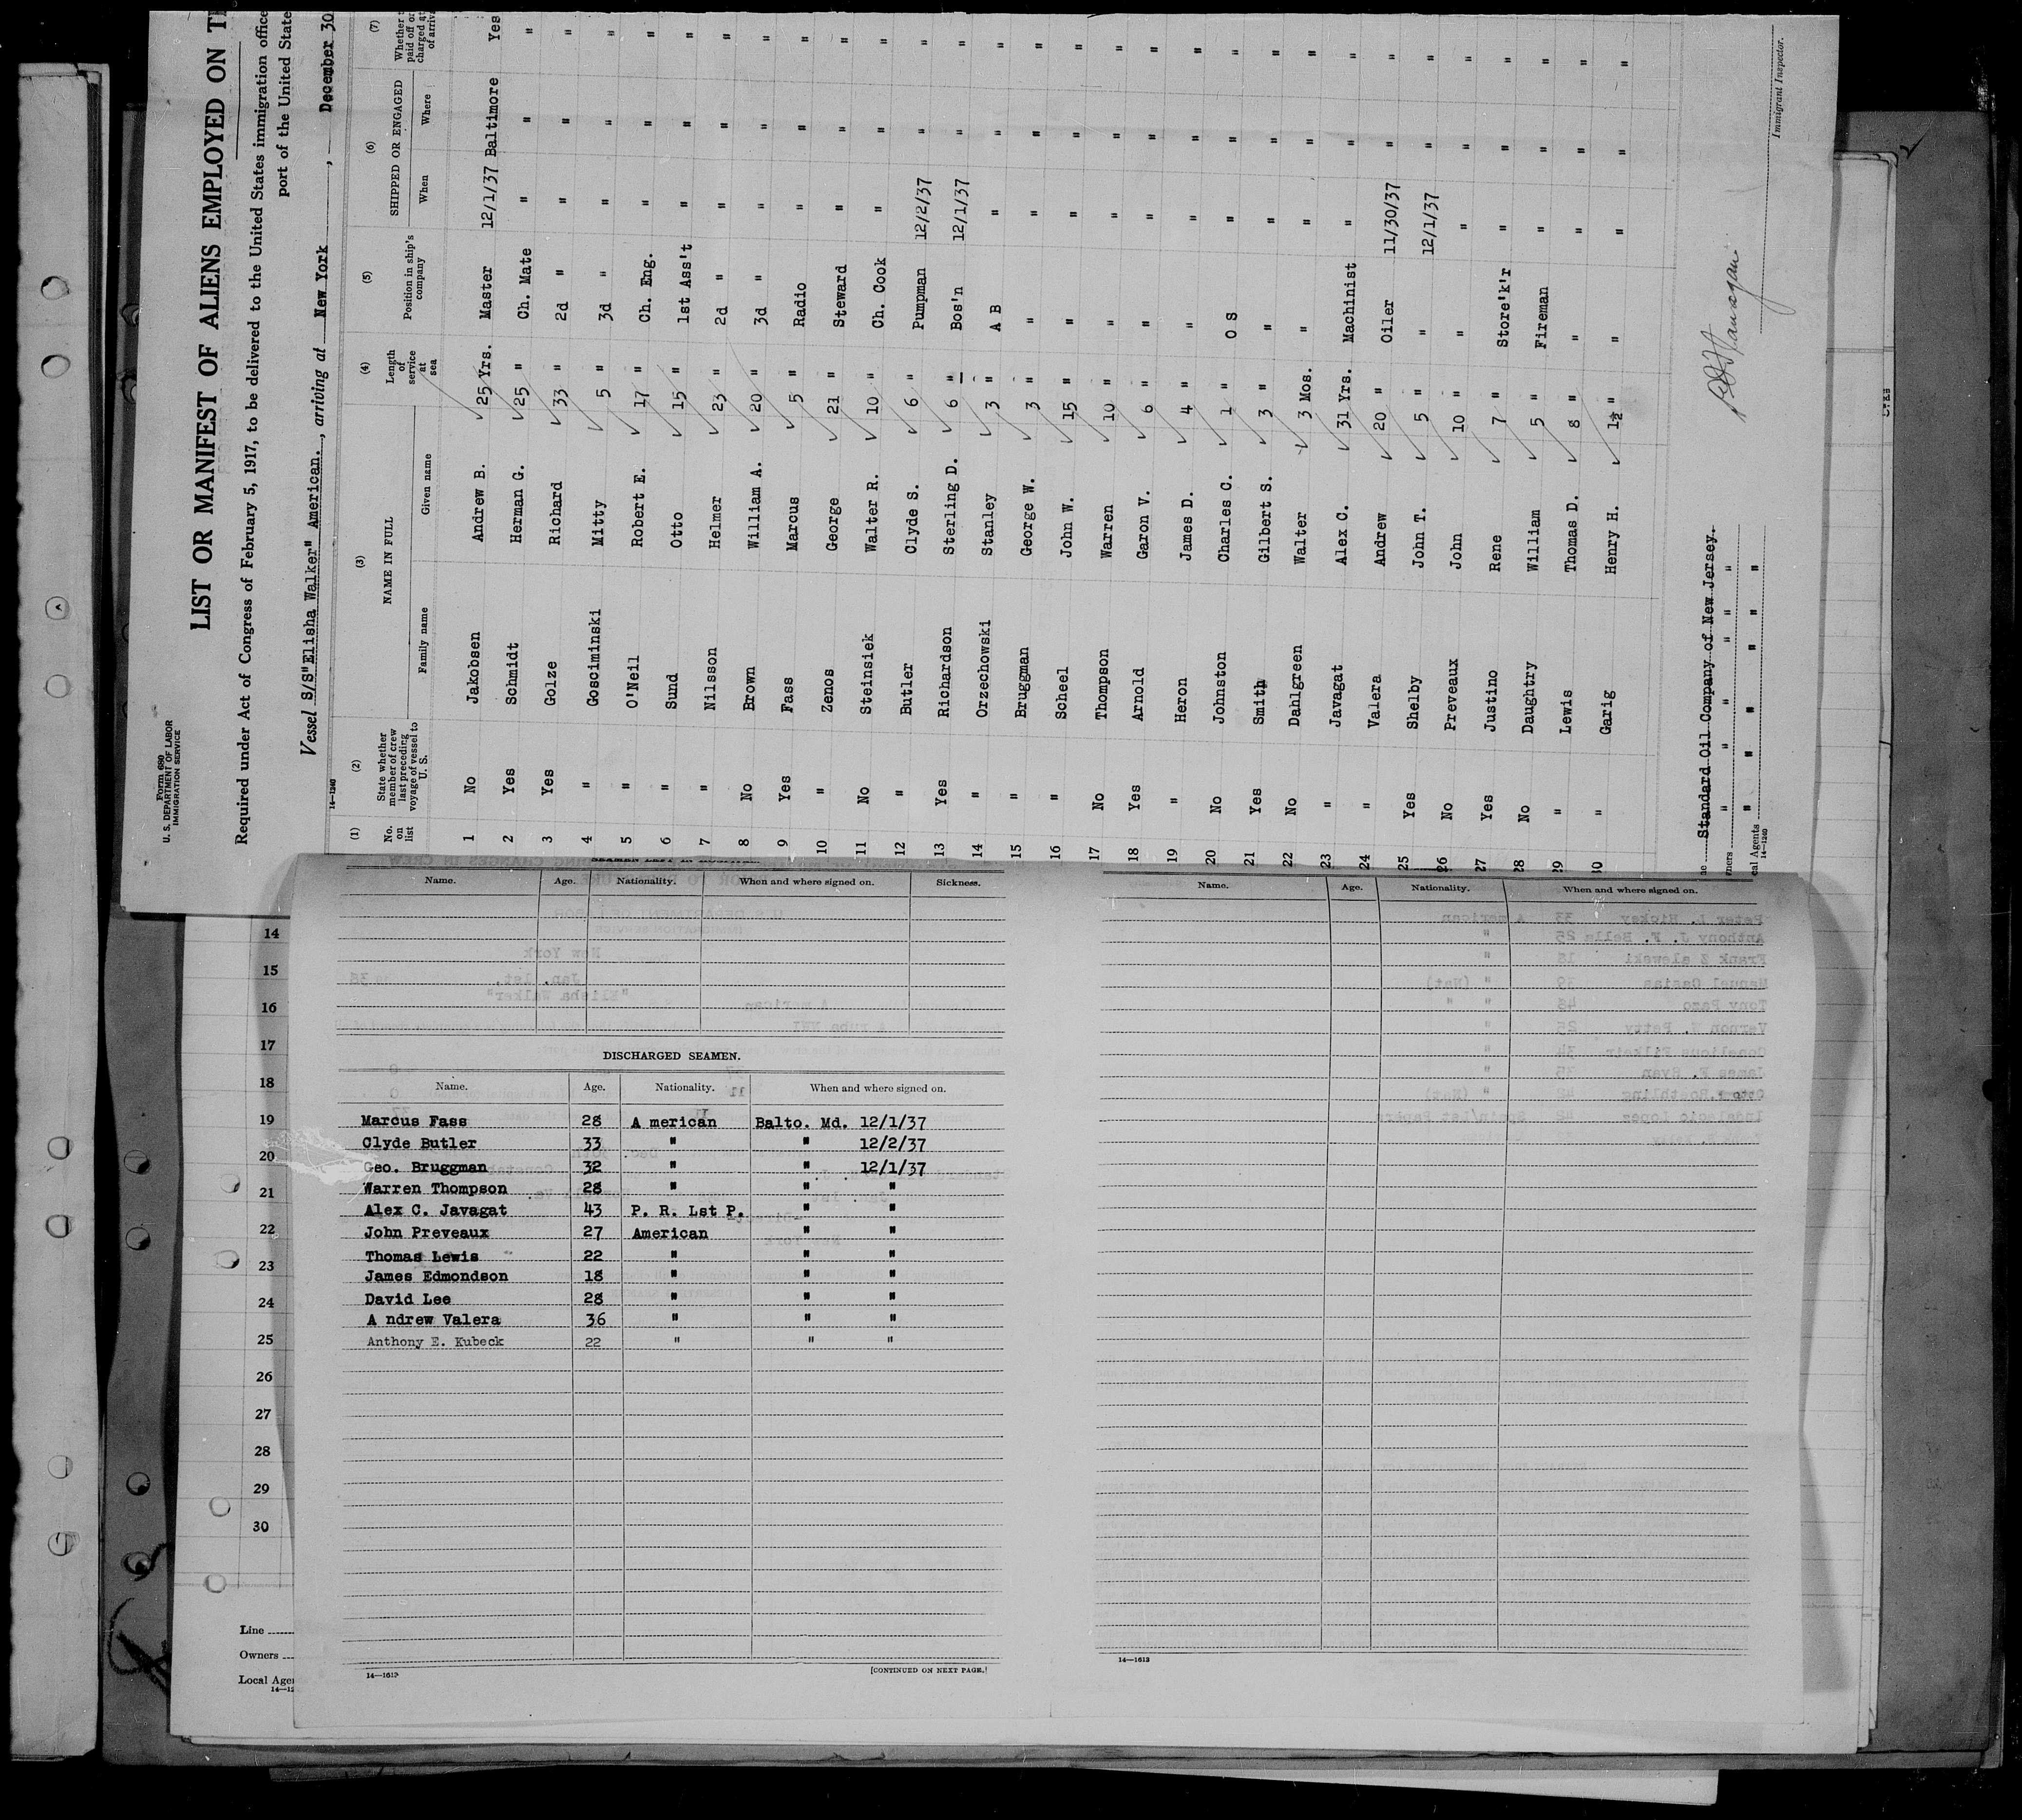 Form 680
U. S. DEPARTMENT OF LABOR
IMMIGRATION SERVICE
LIST OR MANIFEST OF ALIENS EMPLOYED ON
Required under Act of Congress of February 5, 1917, to be delivered to the United States immigration
port of the United
Vessel S/S"Elisha Walker" American., arriving at New York, December 30
14—1240
(1) (2) (3) (4) (5) (6) (7)
No. on list
State whether member of crew last preceding voyage of vessel to U. S.
NAME IN FULL
Family name Given name
Length of service at sea
Position in ship's company
SHIPPED OR ENGAGED
When Where
Whether
paid off or
charged at
of
1 No Jakobsen Andrew B. 25 Yrs. Master 12/1/37 Baltimore Yes
2 Yes Schmidt Herman G. 25 " Ch. Mate " " "
3 Yes Golze Richard 33 " 2d " " " "
4 " Gosciminski Mitty 5 " 3d " " " "
5 " O'Neil Robert E. 17 " Ch. Eng. " " "
6 " Sund Otto 15 " 1st Ass't " " "
7 " Nilsson Helmer 23 " 2d " " " "
8 No Brown William A. 20 " 3d " " " "
9 Yes Fass Marcus 5 " Radio " " "
10 " Zenos George 21 " Steward " " "
11 No Steinsiek Walter R. 10 " Ch. Cook " " "
12 " Butler Clyde S. 6 " Pumpman 12/2/37 " "
13 Yes Richardson Sterling D. 6 " Bos'n 12/1/37 " "
14 " Orzechowski Stanley 3 " A B " " "
15 " Bruggman George W. 3 " " " " "
16 " Scheel John W. 15 " " " " "
17 No Thompson Warren 10 " " " " "
18 Yes Arnold Garon V. 6 " " " " "
19 " Heron James D. 4 " " " " "
20 No Johnston Charles C. 1 " O S " " "
21 Yes Smith Gilbert S. 3 " " " " "
22 No Dahlgreen Walter 3 Mos. " " " "
23 " Javagat Alex C. 31 Yrs. Machinist " " "
24 " Valera Andrew 20 " Oiler 11/30/37 " "
25 Yes Shelby John T. 5 " " 12/1/37 " "
26 No Preveaux John 10 " " " " "
27 Yes Justino Rene 7 " Store'k'r " " "
28 No Daughtry William 5 " Fireman " " "
29 " Lewis Thomas D. 8 " " " " "
30 " Garig Henry H. 1½ " " " " "
Standard Oil Company of New Jersey.
" " " " " "
Agents " " " " "
14—1240
Immigrant Inspector.
Name. Age. Nationality. When and where signed on. Sickness.
DISCHARGED SEAMEN.
Name. Age. Nationality. When and where signed on.
Marcus Fass 28 A merican Balto. Md. 12/1/37
Clyde Butler 33 " " 12/2/37
Geo. Bruggman 32 " " 12/1/37
Warren Thompson 28 " " "
Alex C. Javagat 43 P. R. Lst P. " "
John Preveaux 27 American " "
Thomas Lewis 22 " " "
James Edmondson 18 " " "
David Lee 28 " " "
A ndrew Valera 36 " " "
Anthony E. Kubeck 22 " " "
14—1613 [CONTINUED ON NEXT PAGE.]
Name. Age. Nationality. When and where signed on.
14—1613
14
15
16
17
18
19
20
21
22
23
24
25
26
27
28
29
30
Line
Owners
Local